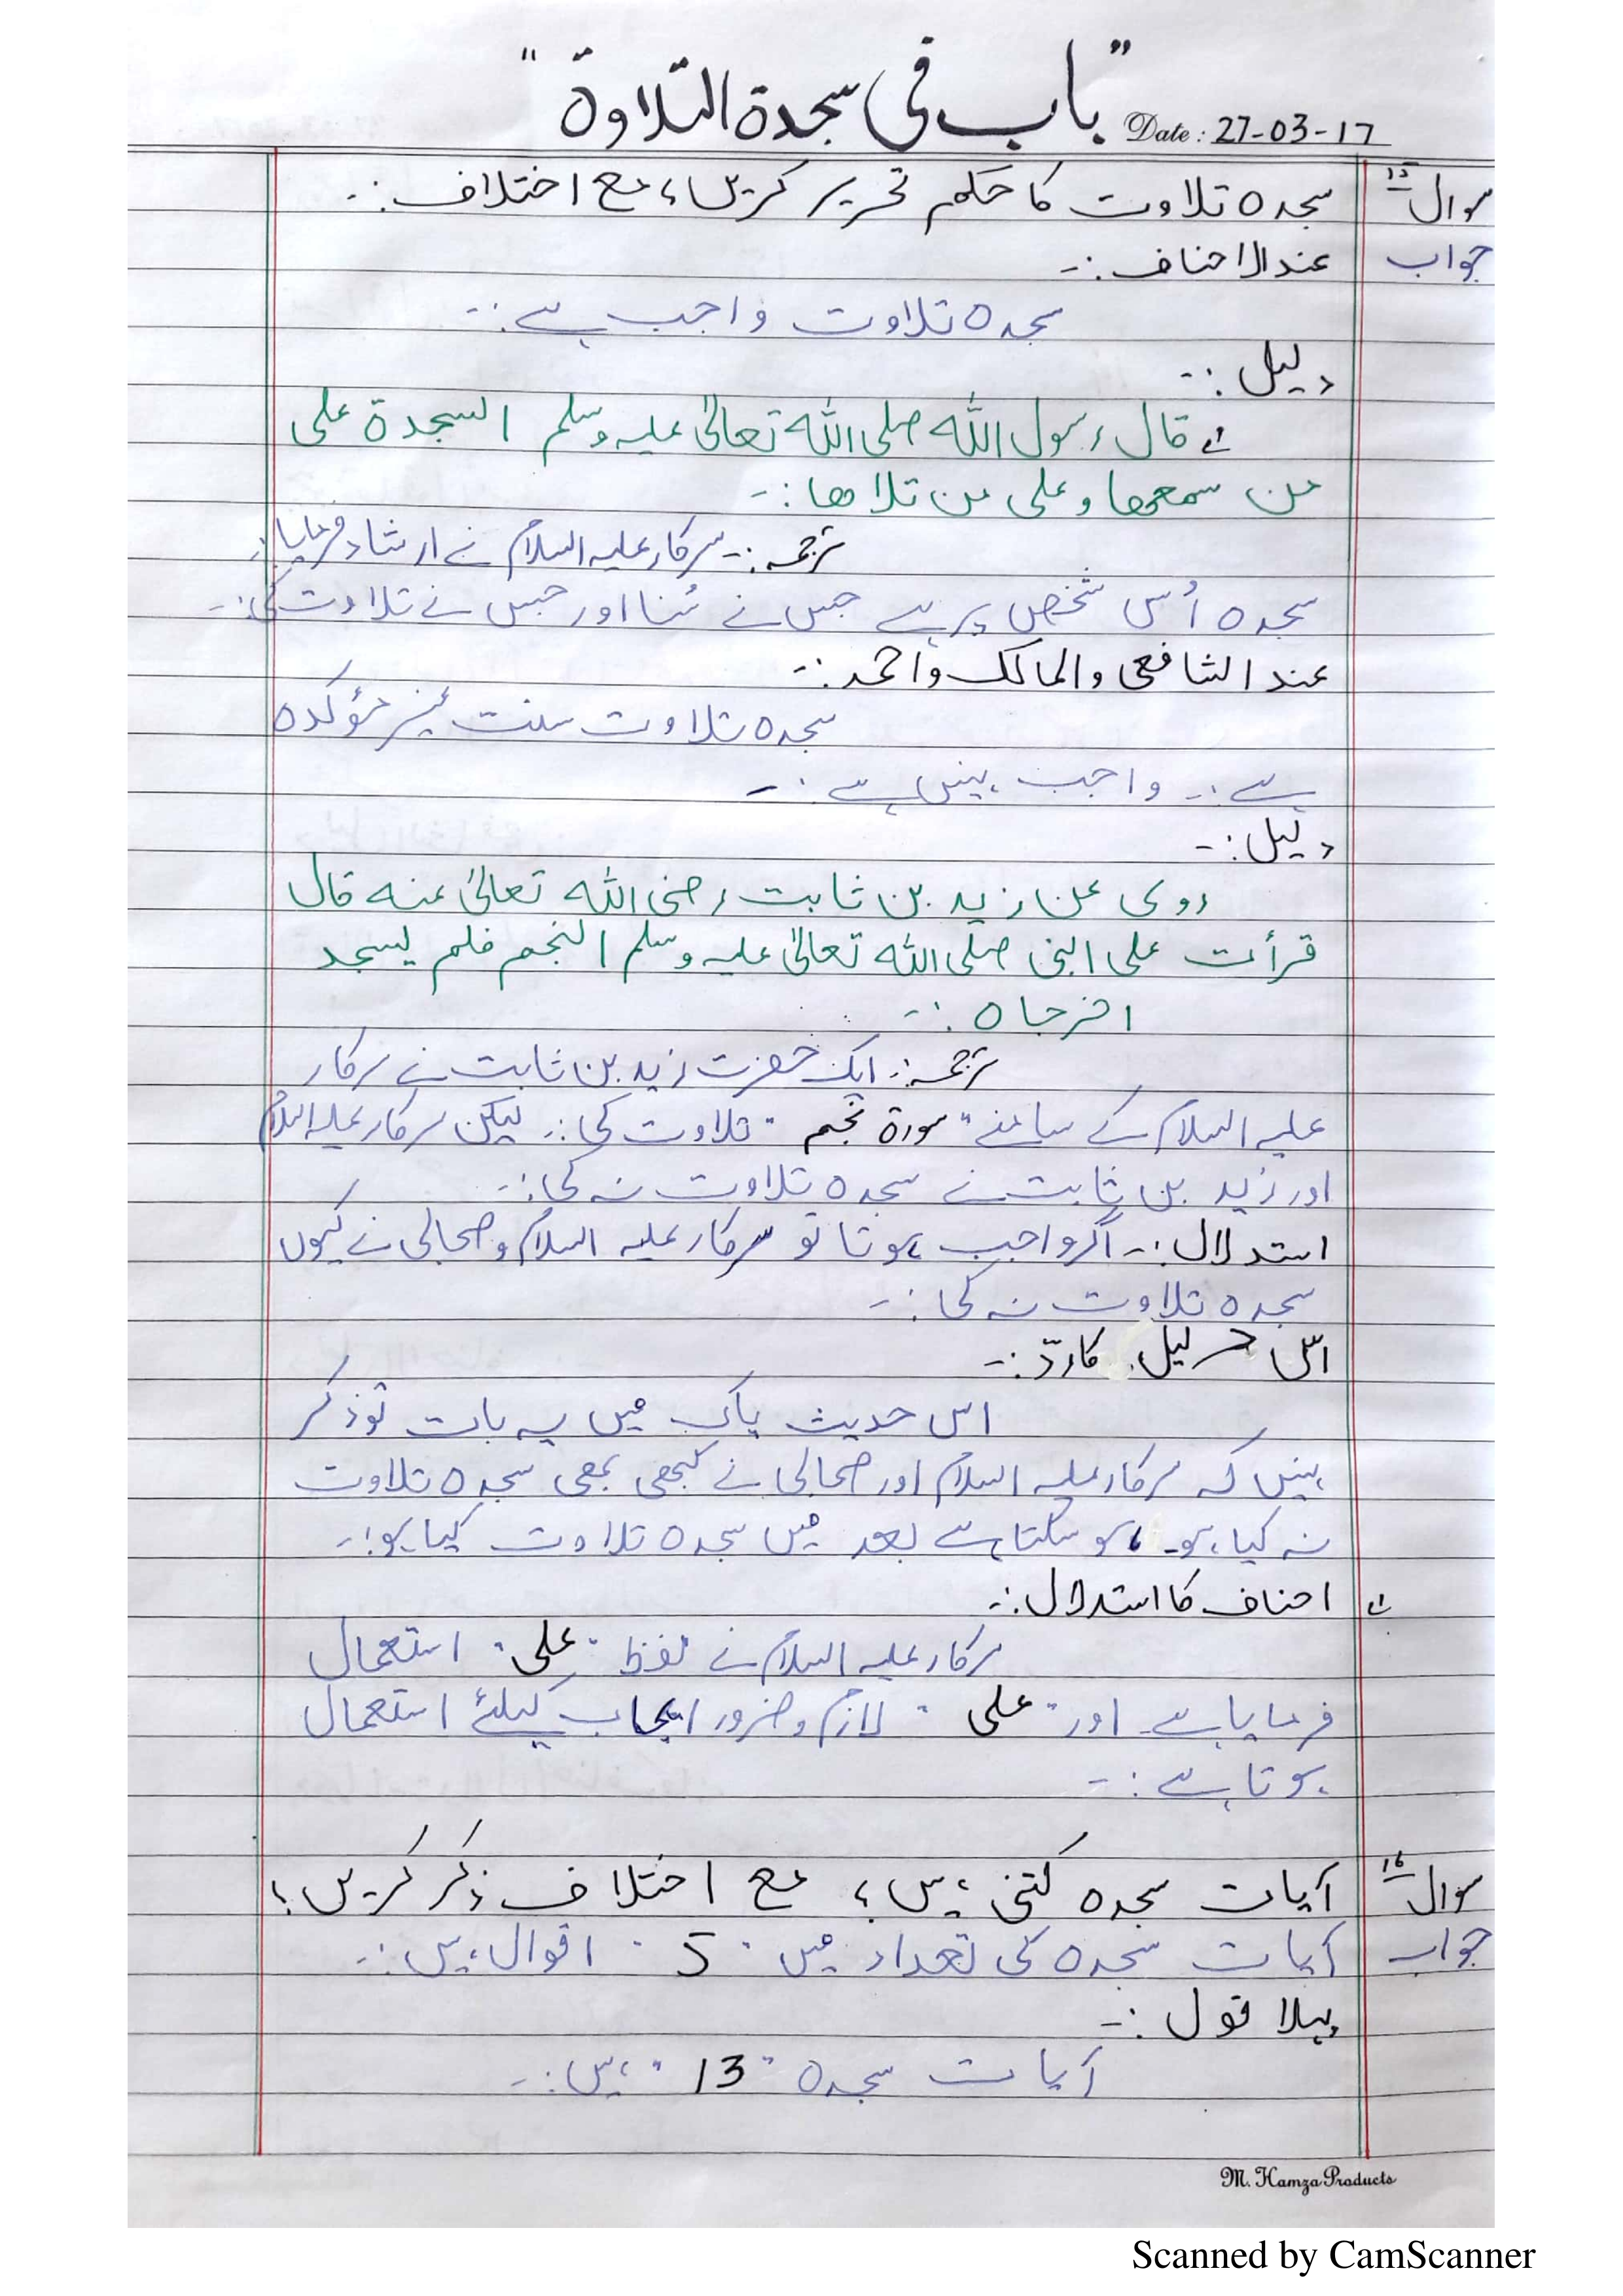 "باب فی سجدۃ التلاوۃ"
Date: 27-03-17
سوال 15 سجدہ تلاوت کا حکم تحریر کریں، مع اختلاف :۔
جواب عند الاحناف :۔
سجدہ تلاوت واجب ہے :۔
دلیل :۔
۱؎ قال رسول اللہ صلی اللہ تعالیٰ علیہ وسلم السجدۃ علی
من سمعھا وعلی من تلاھا :۔
ترجمہ :۔ سرکار علیہ السلام نے ارشاد فرمایا:
سجدہ اُس شخص پر ہے جس نے سُنا اور جس نے تلاوت کی :۔
عند الشافعی والمالک واحمد :۔
سجدہ تلاوت سنت غیر مؤکدہ
ہے :۔ واجب نہیں ہے :۔
دلیل :۔
روی عن زید بن ثابت رضی اللہ تعالیٰ عنہ قال
قرأت علی النبی صلی اللہ تعالیٰ علیہ وسلم النجم فلم یسجد
اخرجاہ :۔
ترجمہ :۔ ایک حضرت زید بن ثابت نے سرکار
علیہ السلام کے سامنے "سورۃ نجم" تلاوت کی :۔ لیکن سرکار علیہ السلام
اور زید بن ثابت نے سجدہ تلاوت نہ کی :۔
استدلال :۔ اگر واجب ہوتا تو سرکار علیہ السلام و صحابی نے کیوں
سجدہ تلاوت نہ کی :۔
اس دلیل کا ردّ :۔
اس حدیث پاک میں یہ بات تو ذکر
نہیں کہ سرکار علیہ السلام اور صحابی نے کبھی بھی سجدہ تلاوت
نہ کیا ہو۔ ہو سکتا ہے بعد میں سجدہ تلاوت کیا ہو :۔
۱؎ احناف کا استدلال :۔
سرکار علیہ السلام نے لفظ "علی" استعمال
فرمایا ہے اور "علی" لازم و ضرور ایجاب کیلئے استعمال
ہوتا ہے :۔
سوال 16 آیات سجدہ کتنی ہیں؟ مع اختلاف ذکر کریں؟
جواب آیات سجدہ کی تعداد میں "5" اقوال ہیں :۔
پہلا قول :۔
آیات سجدہ "13" ہیں :۔
M. Hamza Products
Scanned by CamScanner